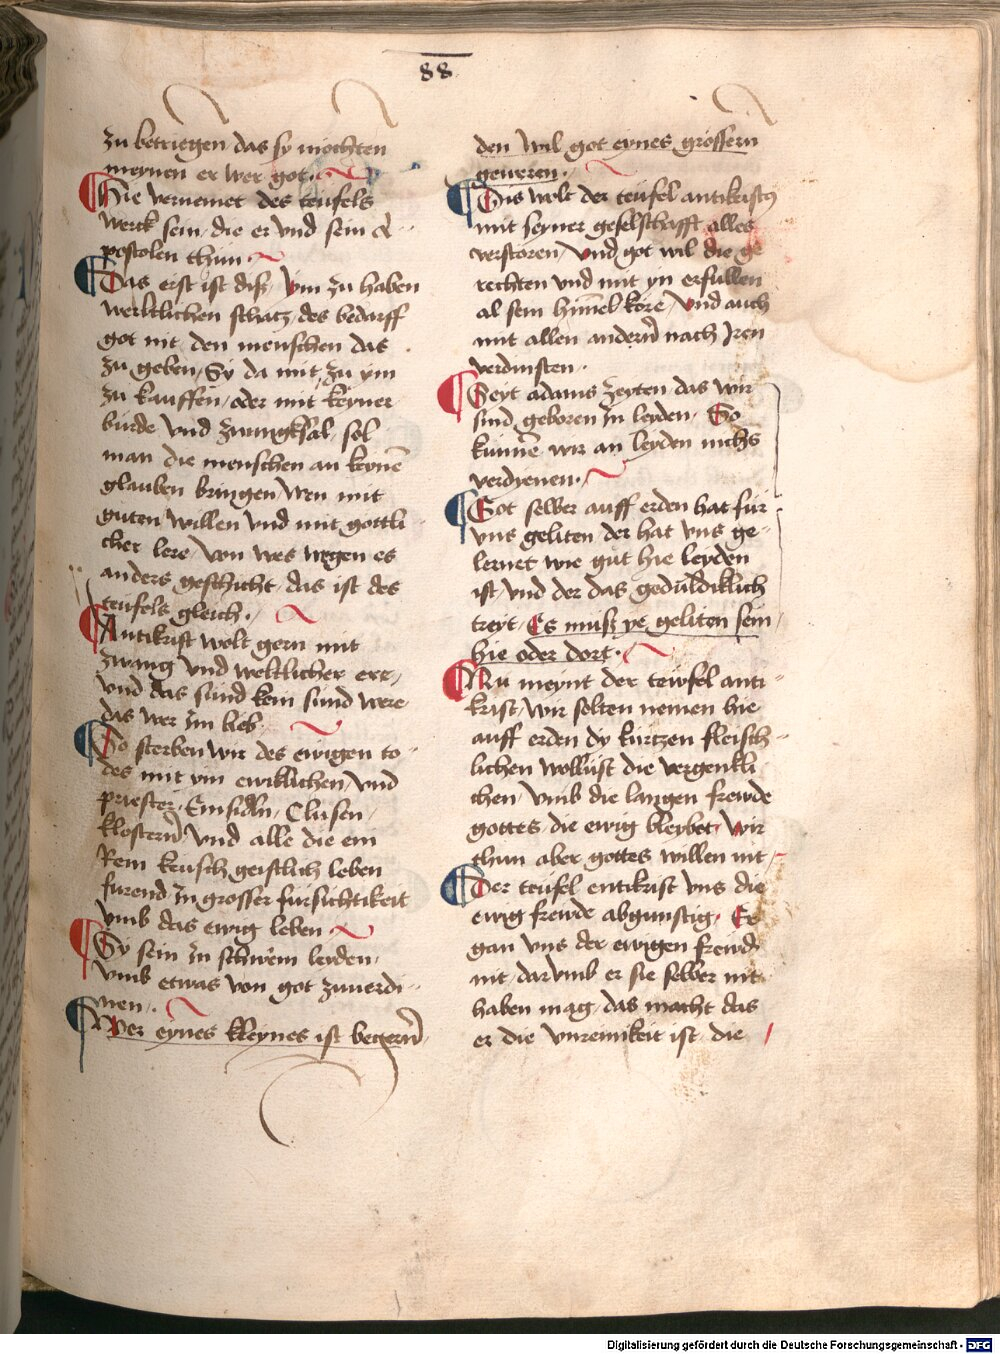 88
zu betriegen das sy mochten
meynen er wer got.
Hie vernemet des teufels
werck sein, die er vnd sein A
postolen thun
Das erst ist diß, vm zu haben
werltlichen schatz, des bedarff
got nit den menschen das
zu geben, Sy da mit zu ym
zu kauffen, oder mit keyner
burde vnd zwungksal, sol
man die menschen an keynē
glauben bringen, wen mit
guten willen vnd mit gottli
cher lere, von wes wegen es
anders geschicht, das ist des
teufels gleich.
Antikrist wolt gern mit
zwang vnd weltlicher err,
vnd das sund kein sund were
das wer ym lieb
So sterben wir des ewigen to
des mit ym ewiklichen, vnd
priester, Einsidln, Clusen,
klostern, vnd alle die ein
Rein keusch geistlich leben
furend, In grosser fursichtikeit
vmb das ewig leben
Sy sein In schwem leyden,
vmb etwas von got zuuerdi
nen.
Wer eynes kleynes ist begern,
den wil got eynes grossern
geweren.
Dis wolt der teufel antikrist
mit seyner geselschafft alles
verstoren, vnd got wil die ge
rechten vnd mit yn erfullen
al sein himel kore, vnd auch
mit allen andern nach Iren
verdinsten.
Seyt adams zeyten das wir
sind geboren In leyden, So
kunnē wir an leyden nichs
verdyenen.
Got selber auff erden hat fur
vns geliten der hat vns ge
lernet wie gut hie leyden
ist, vnd der das geduldiklich
treyt, Es muß ye geliten sein,
hie oder dort.
Nu meynt der tewfel anti
krist, wir solten nemen hie
auff erden dy kurtzen fleisch
lichen wollust die vergenkli
chen, vmb die langen frewde
gottes, die ewig bleybet, wir
thun aber gottes willen nit,
Der teufel entikrist vns die
ewig frewde abgunstig, Er
gan vns der ewigen frewd
nit, dar vmb er sie selber nit
haben mag, das macht das
er die vnreinikeit ist, die
Digitalisierung gefördert durch die Deutsche Forschungsgemeinschaft - DFG